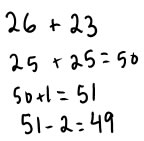 26 + 23
25 + 25 = 50
50 + 1 = 51
51 - 2 = 49